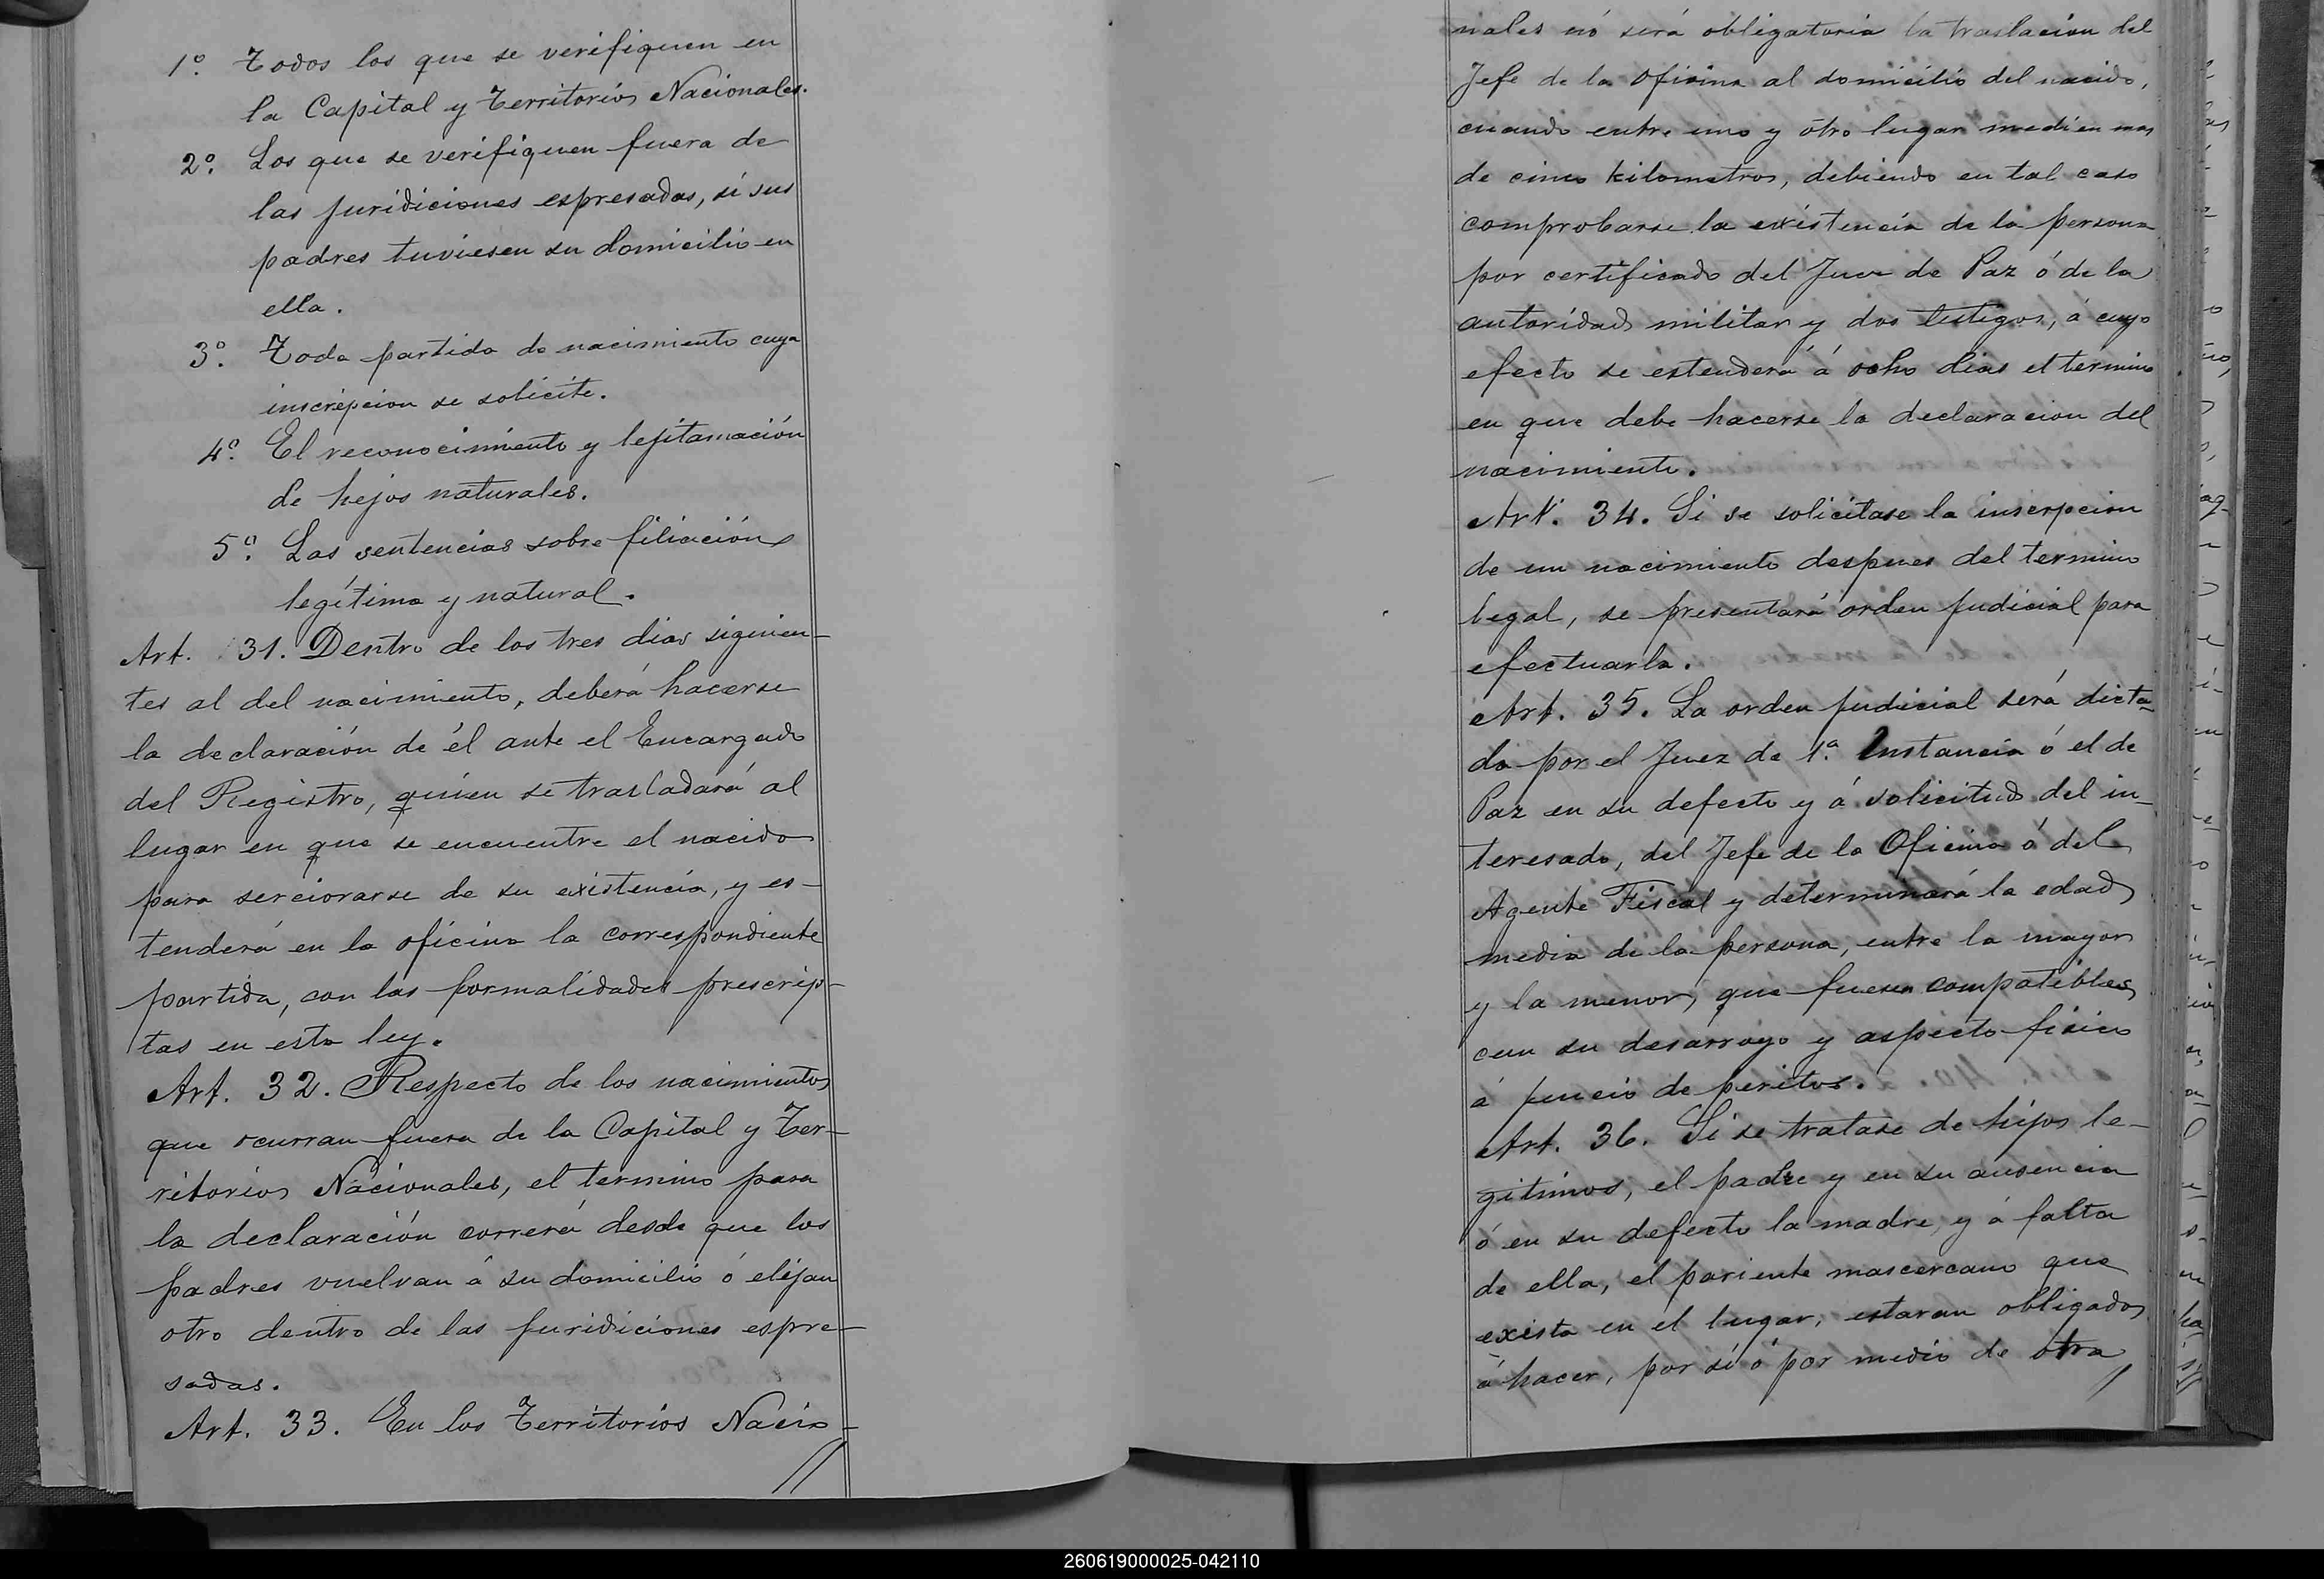 1º. Todos los que se verifiquen en
la Capital y Territorios Nacionales.
2º. Los que se verifiquen fuera de
las juridiciones espresadas, si sus
padres tuviesen su domicilio en
ella.
3º. Toda partida de nacimiento cuya
inscripcion se solicite.
4º. El reconocimiento y lejitamación
de hejos naturales.
5º. Las sentencias sobre filiación
legítima y natural.
Art. 31. Dentro de los tres dias siguien-
tes al del nacimiento, deberá hacerse
la declaración de él ante el Encargado
del Registro, quien se trasladará al
lugar en que se encuentre el nacido
para serciorarse de su existencia, y es-
tenderá en la oficina la correspondiente
partida, con las formalidades prescrip-
tas en esta ley.
Art. 32. Respecto de los nacimientos
que ocurran fuera de la Capital y Ter-
ritorios Nacionales, el termino para
la declaración correrá desde que los
padres vuelvan á su domicilio ó elijan
otro dentro de las juridiciones espre-
sadas.
Art. 33. En los Territorios Nacio-
nales nó será obligatoria la traslacion del
Jefe de la oficina al domicilio del nacido,
cuando entre uno y ótro lugar medien mas
de cinco kilometros, debiendo en tal caso
comprobarse la existencia de la persona
por certificado del Juez de Paz ó de la
autoridad militar y dos testigos, á cuyo
efecto se estenderá á ocho dias el término
en que debe hacerse la declaracion del
nacimiento.
Art. 34. Si se solicitase la inscrpcion
de un nacimiento despues del termino
legal, se presentará orden judicial para
efectuarla.
Art. 35. La orden judicial será dicta-
da por el Juez de 1.ª Instancia ó el de
Paz en su defecto y á solicitud del in-
teresado, del Jefe de la Oficina ó del
Agente Fiscal y determinará la edad
media de la persona, entre la mayor
y la menor, que fuesen compatibles
con su desarroyo y aspecto fisico
á juicio de peritos.
Art. 36. Si se tratase de hijos le-
gitimos, el padre y en su ausencia
ó en su defecto la madre, y á falta
de ella, el pariente mas cercano que
exista en el lugar, estaran obligados
á hacer, por sí ó por medio de otra
260619000025-042110